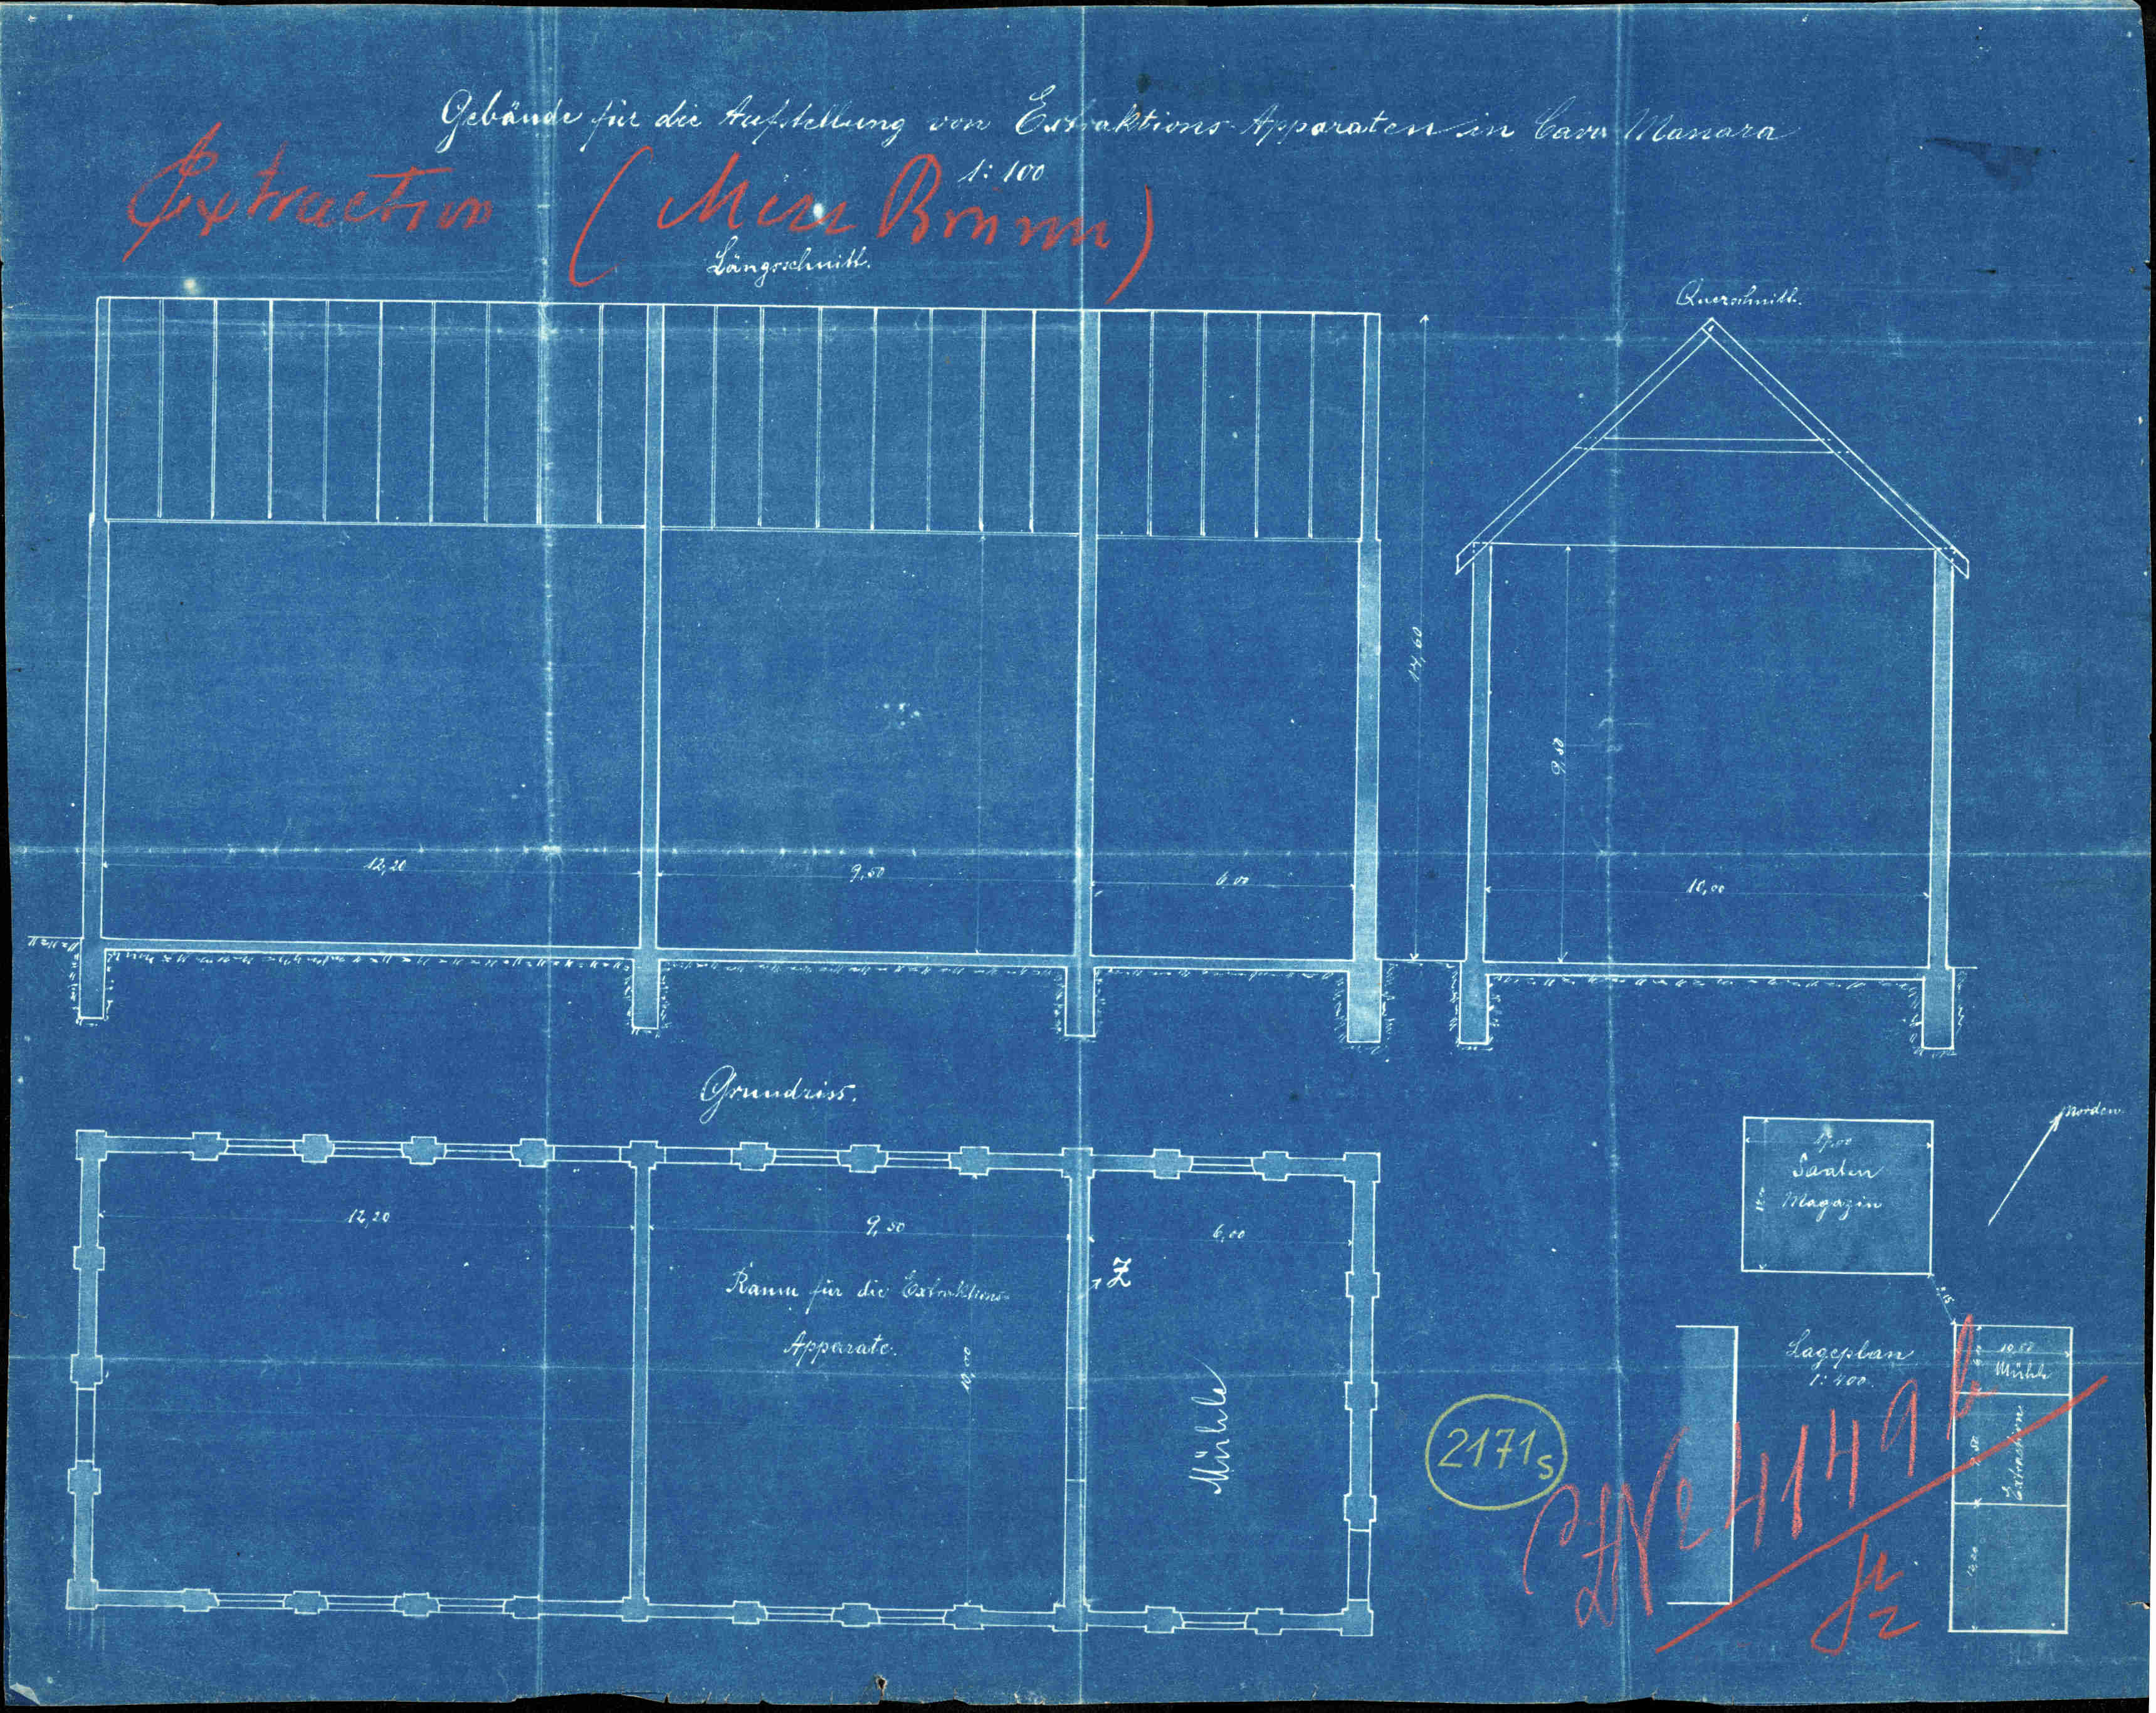 Gebäude für die Aufstellung von Extraktions-Apparaten in Cava Manara
1:100
Extraction
Längsschnitt.
Querschnitt.
14,60
9,50
12,20
9,50
6,00
10,00
Grundriss.
Norden
17,00
Saaten
Magazin
12,20
9,50
6,00
Z
Raum für die Extraktions-
Apparate.
10,00
Mühle
Lageplan
1:400.
10,50
Mühle
Extraktion
12,20
2171s